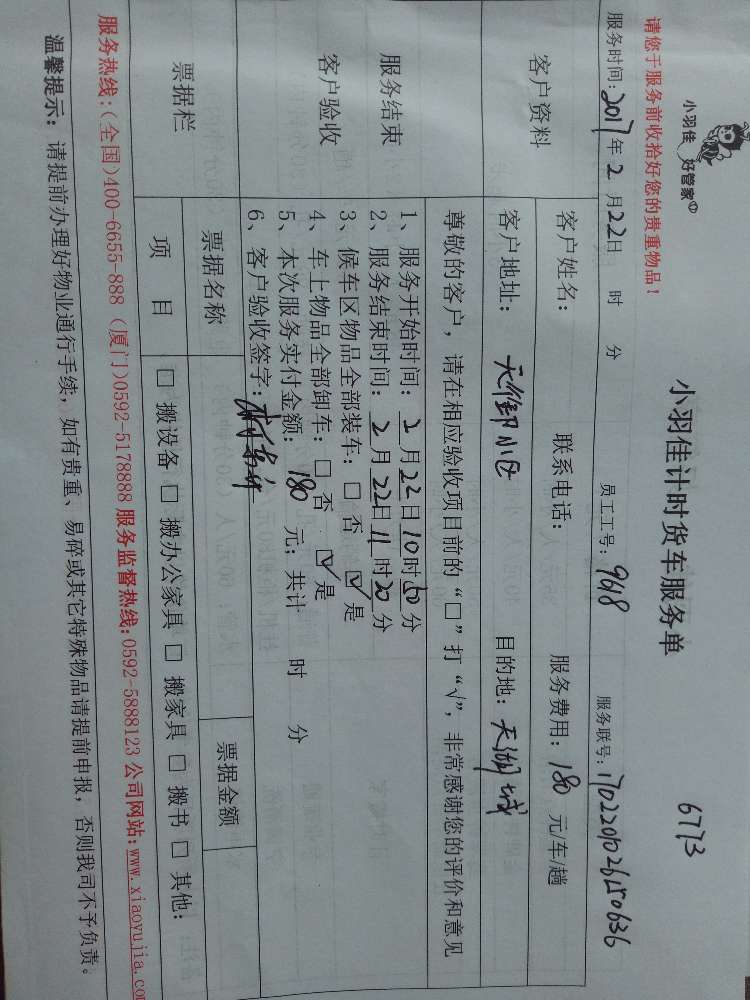 小羽佳 好管家
小羽佳计时货车服务单
6773
请您于服务前收拾好您的贵重物品！
服务时间：2017年2月22日 时 分 员工工号：9618 服务联号：
客户资料
客户姓名： 联系电话： 服务费用：180元/车/趟
客户地址： 小区 目的地：天湖城
尊敬的客户，请在相应验收项目前的“□”打“√”，非常感谢您的评价和意见
服务结束
客户验收
1、服务开始时间：2月22日10时50分
2、服务结束时间：2月22日11时20分
3、候车区物品全部装车：□ 否 ☑ 是
4、车上物品全部卸车：□ 否 ☑ 是
5、本次服务实付金额：180元；共计 时 分
6、客户验收签字：
票据栏
票据名称 票据金额
项 目 □ 搬设备 □ 搬办公家具 □ 搬家具 □ 搬书 □ 其他：
服务热线：(全国)400-6655-888 (厦门)0592-5178888 服务监督热线：0592-5888123 公司网站：www.xiaoyujia.com
温馨提示：请提前办理好物业通行手续，如有贵重、易碎或其它特殊物品请提前申报，否则我司不予负责。